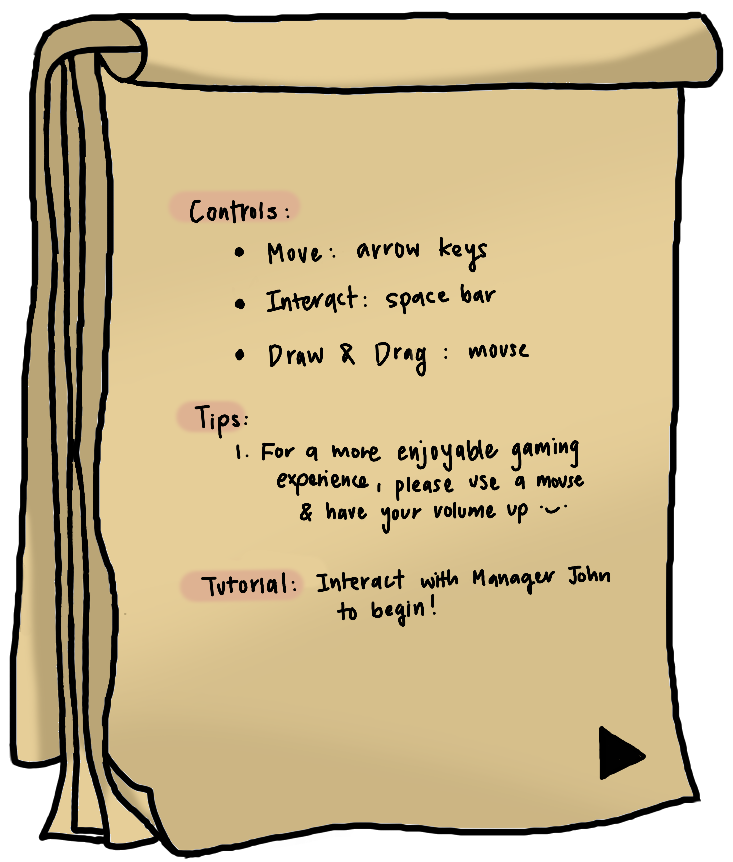 Controls:
• Move: arrow keys
• Interact: space bar
• Draw & Drag : mouse
Tips:
1. For a more enjoyable gaming
experience, please use a mouse
& have your volume up ·‿·
Tutorial: Interact with Manager John
to begin!